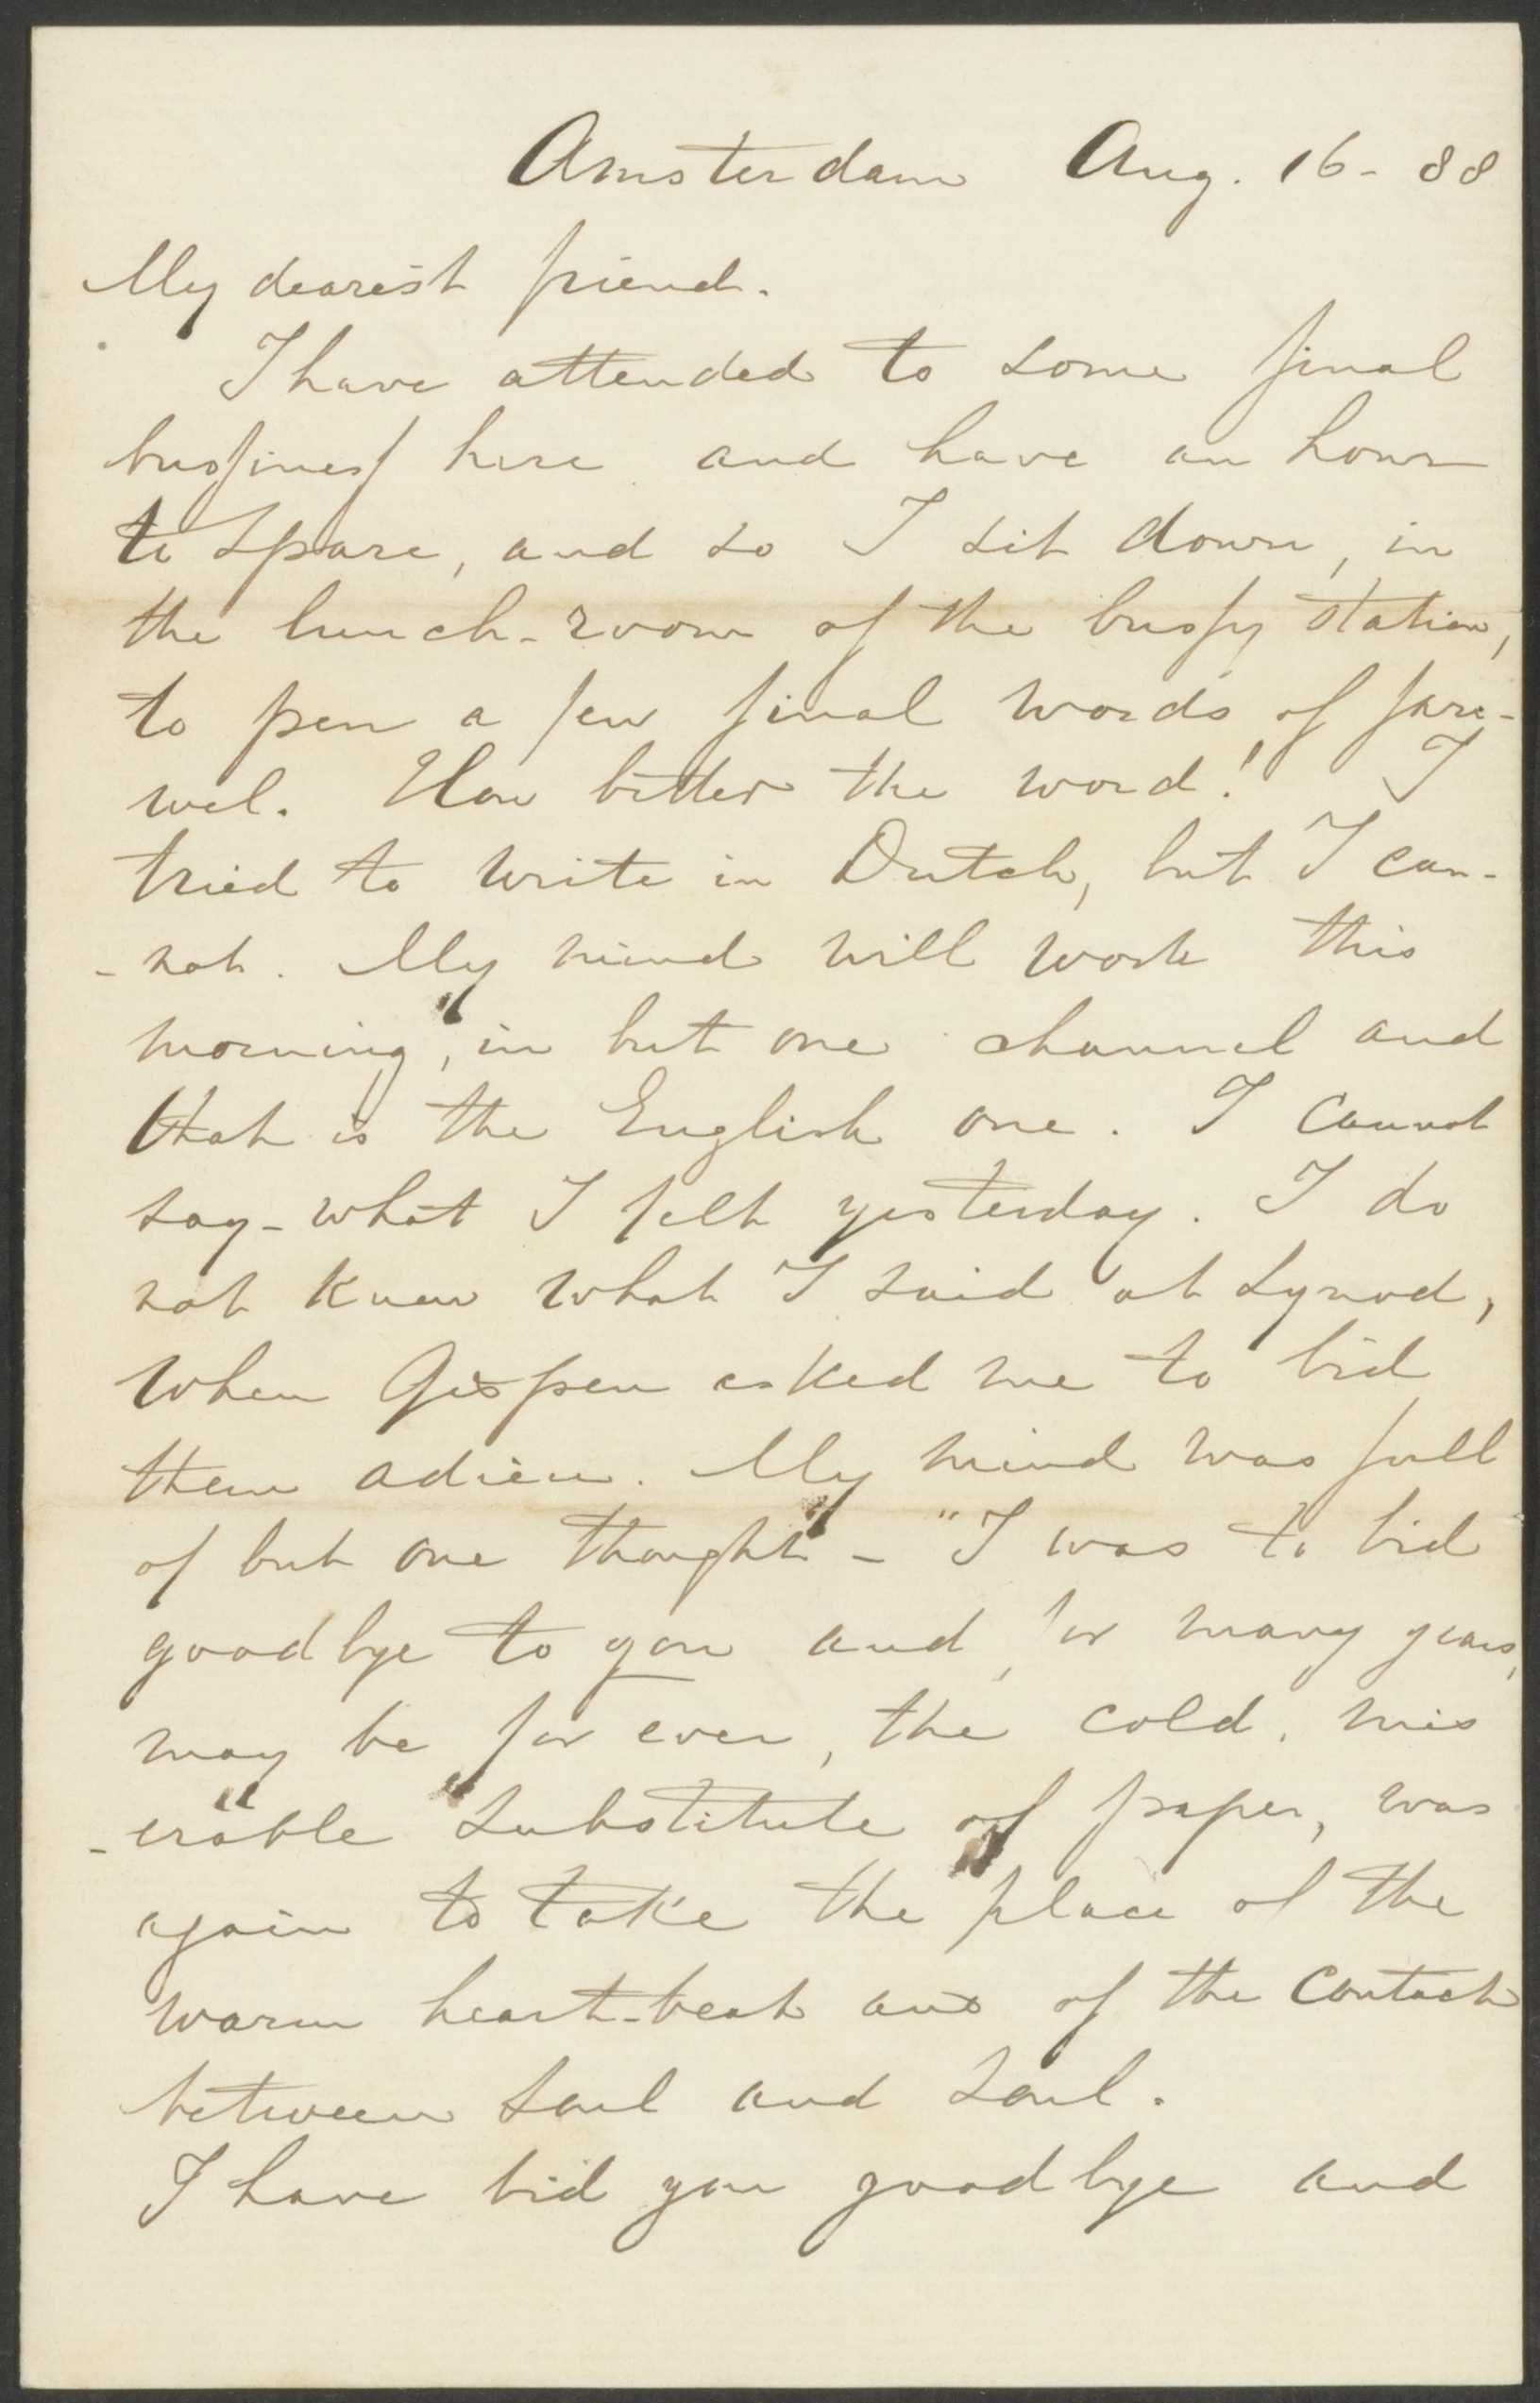 Amsterdam Aug. 16 - 88
My dearest friend.
I have attended to some final
bussiness here and have an hour
to spare, and so I sit down, in
the lunch-room of the bussy station,
to pen a few final words of fare-
wel. How bitter the word! I
tried to write in Dutch, but I can-
-not. My mind will work this
morning, in but one channel and
that is the English one. I cannot
say - what I felt yesterday. I do
not know what I said at Synod,
when Gispen asked me to bid
them adieu. My mind was full
of but one thought - "I was to bid
goodbye to you and, for many years,
may be for ever, the cold, mis
-erable substitute of paper, was
again to take the place of the
warm heart-beat and of the contact
between soul and soul.
I have bid you goodbye and